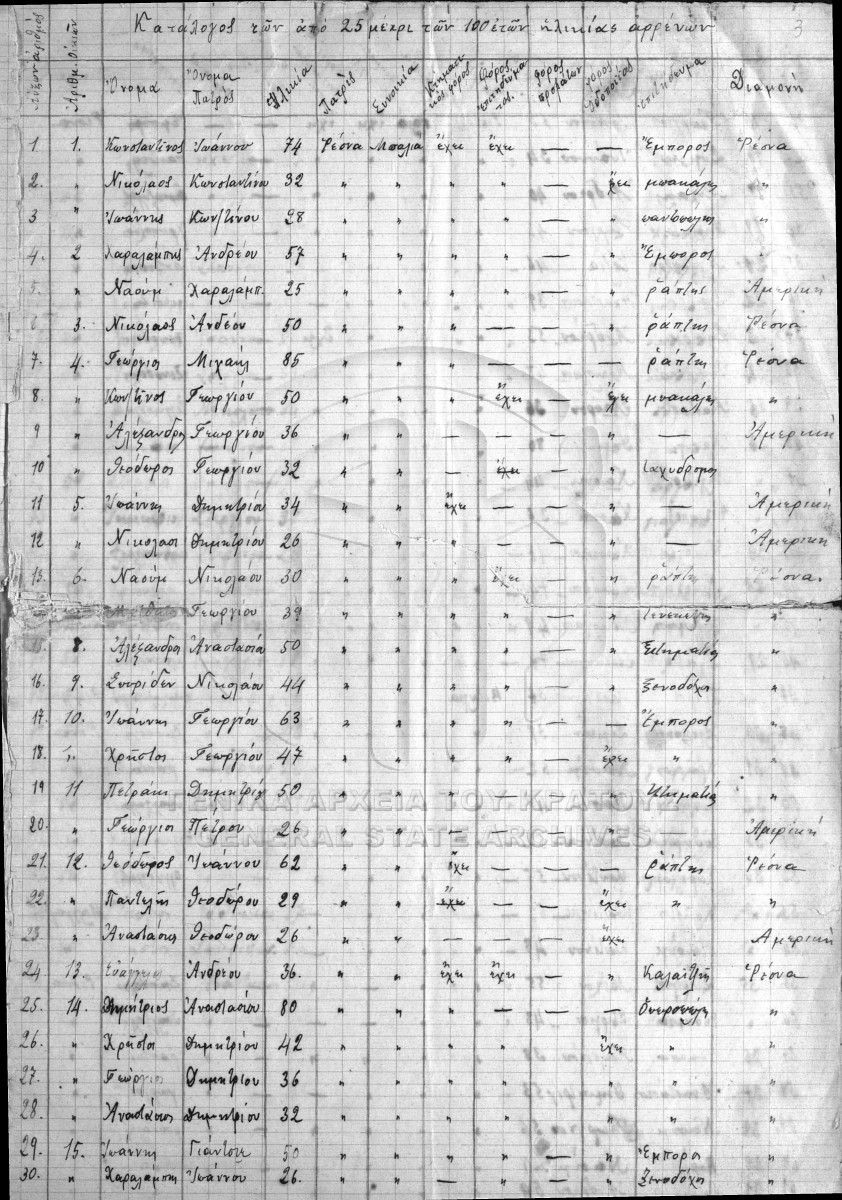 Κατάλογος τῶν ἀπό 25 μέχρι τῶν 100 ἐτῶν ἡλικίας ἀρρένων 3
Αὔξων ἀριθμός Ἀριθμ. οἰκιῶν Ὄνομα Ὄνομα Πατρός Ἡλικία Πατρίς Συνοικία φόρος φόρος ἐπιτηδεύμα τος. φόρος προβάτων φόρος Ὁδοποιίας Ἐπιτήδευμα Διαμονή
1 1. Κωνσταντίνος Ἰωάννου 74 Ρέσνα Μπαλιά ἔχει ἔχει — — Ἔμπορος Ρέσνα
2. " Νικόλαος Κωνσταντίνου 32 " " " " — ἔχει μπακάλης "
3 " Ἰωάννης Κων/τίνου 28 " " " " — " παντοπώλης "
4. 2 Χαραλάμπης Ἀνδρέου 57 " " " " — " Ἔμπορος "
5. " Ναούμ Χαραλάμπ. 25 " " " " — " ῥάπτης Ἀμερική
6 3. Νικόλαος Ἀνδέου 50 " " " — — " ῥάπτης Ρέσνα
7. 4. Γεώργιος Μιχαήλ 85 " " " — — — ῥάπτης Ρέσνα
8 " Κων/τίνος Γεωργίου 50 " " " ἔχει — ἔχει μπακάλης "
9 " Ἀλέξανδρος Γεωργίου 36 " " — — — " — Ἀμερική
10 " Θεόδωρος Γεωργίου 32 " " — ἔχει — " ταχυδρομος
11 5. Ἰωάννης Δημητρίου 34 " " ἔχει — — " — Ἀμερική
12 " Νικόλαος Δημητρίου 26 " " " — — " — Ἀμερική
13. 6. Ναούμ Νικολάου 30 " " " ἔχει — " ῥάπτης Ρέσνα
Γεωργίου 39 " " " " — " τενεκετζῆς "
8. Ἀλέξανδρος Ἀναστασίου 50 " " " " — " Κτηματίας "
16. 9. Σπυρίδων Νικολάου 44 " " " " — " Ξενοδόχος "
17. 10. Ἰωάννης Γεωργίου 63 " " " " — — Ἔμπορος "
18. " Χρῆστος Γεωργίου 47 " " " " — ἔχει " "
19 11 Πετράκης Δημητρίου 50 " " " — — " Κτηματίας "
20. " Γεώργιος Πέτρου 26 " " — — — " Ἀμερική
21. 12. Θεόδωρος Ἰωάννου 62 " " ἔχει — — — ῥάπτης Ρέσνα
22. " Παντελῆς Θεοδώρου 29 " " ἔχει — — ἔχει " "
23 " Ἀναστάσιος Θεοδώρου 26 " " — — — ἔχει Ἀμερική
24 13. Εὐάγγελος Ἀνδρέου 36. " " ἔχει ἔχει — " Καλαϊτζῆς Ρέσνα
25. 14. Δημήτριος Ἀναστασίου 80 " " " — — — "
26. " Χρῆστος Δημητρίου 42 " " " " " ἔχει " "
27. " Γεώργιος Δημητρίου 36 " " " " " " " "
28. " Ἀναστάσιος Δημητρίου 32 " " " " " " " "
29. 15. Ἰωάννης 50 " " " " — " Ἔμπορος "
30. " Χαραλάμπης Ἰωάννου 26. " " — " — " Ξενοδόχος "
ΓΕΝΙΚΑ ΑΡΧΕΙΑ ΤΟΥ ΚΡΑΤΟΥΣ
GENERAL STATE ARCHIVES